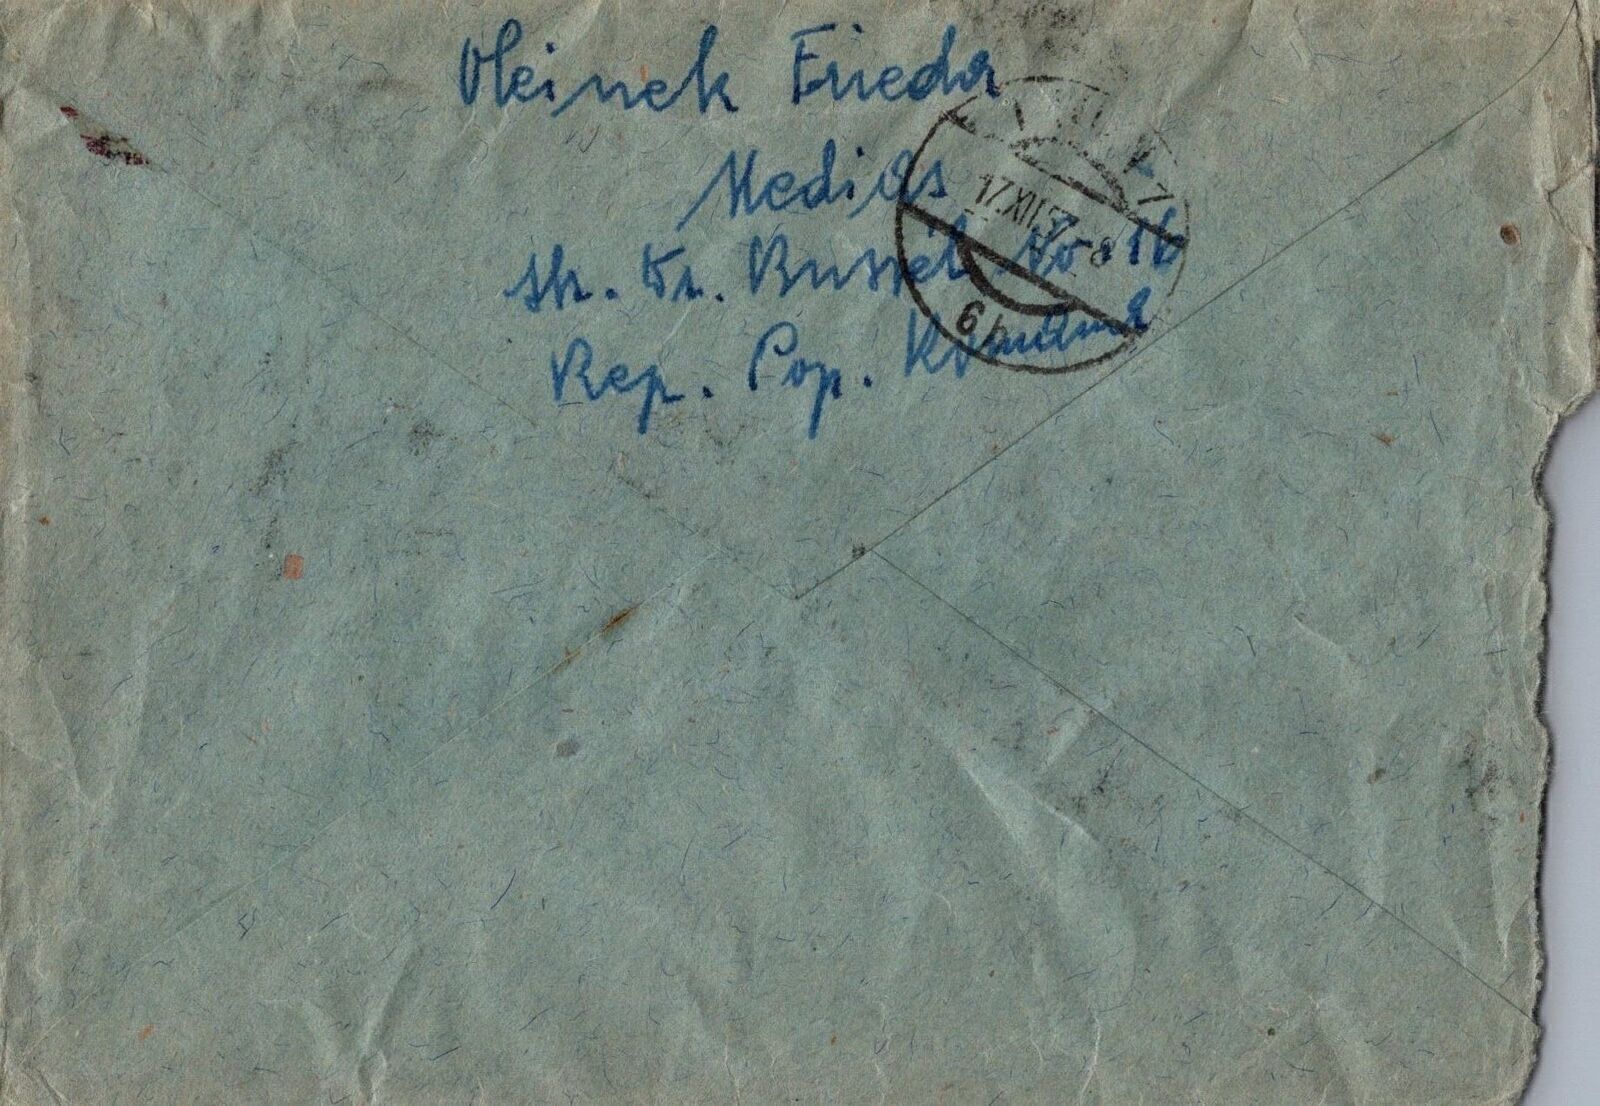 Oleinek Frieda
Medias
str. Dr. Russel No 16
Rep. Pop. Romana
17.XII.57.-8
6b9